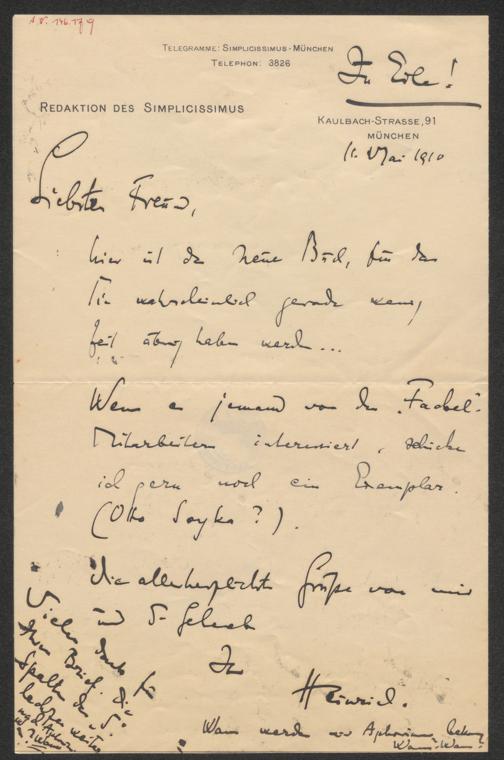 TELEGRAMME: SIMPLICISSIMUS-MÜNCHEN
TELEPHON: 3826
In Eile!
REDAKTION DES SIMPLICISSIMUS
KAULBACH-STRASSE, 91
MÜNCHEN
11. Mai 1910
Liebster Freund,
hier ist das neue Buch, für das
Sie wahrscheinlich gerade wenig
Zeit übrig haben werden...
Wenn es jemand von den "Fackel"-
Mitarbeitern interessiert, schicke
ich gern noch ein Exemplar.
(Otto Soyka?).
Die allerherzlichsten Grüße von mir
und
Ihr
Heinrich.
Wann werden wir Aphorismen bekommen
Wann? Wann?
Vielen Dank für
Ihren Brief. Die
Spalten des S.